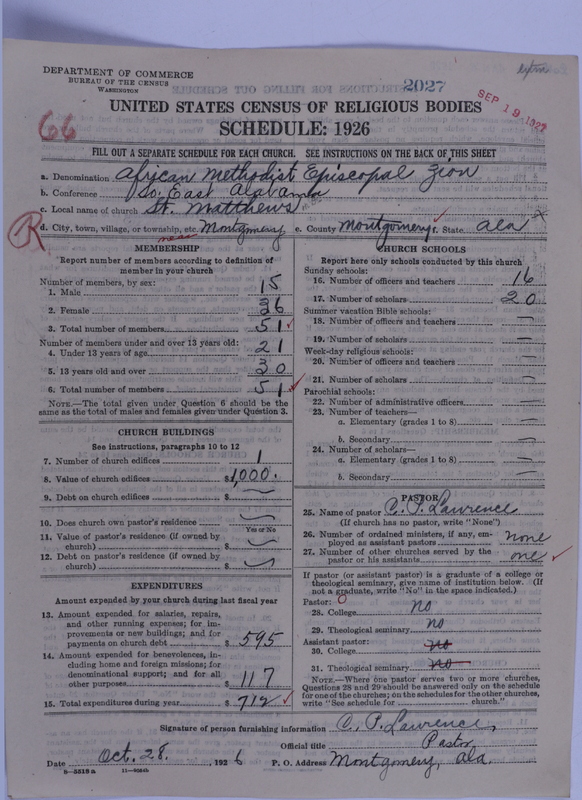 DEPARTMENT OF COMMERCE
BUREAU OF THE CENSUS
WASHINGTON
extra
2027
SEP 19 1927
UNITED STATES CENSUS OF RELIGIOUS BODIES
66
SCHEDULE: 1926
FILL OUT A SEPARATE SCHEDULE FOR EACH CHURCH. SEE INSTRUCTIONS ON THE BACK OF THIS SHEET
a. Denomination African Methodist Episcopal Zion
b. Conference So. East Alabama
c. Local name of church St. Matthews
R
d. City, town, village, or township, etc. near Montgomery e. County Montgomery f. State Ala x
MEMBERSHIP
Report number of members according to definition of
member in your church
Number of members, by sex:
1. Male 15
2. Female 36
3. Total number of members 51
Number of members under and over 13 years old:
4. Under 13 years of age 21
5. 13 years old and over 30
6. Total number of members 51
NOTE.—The total given under Question 6 should be the
same as the total of males and females given under Question 3.
CHURCH BUILDINGS
See instructions, paragraphs 10 to 12
7. Number of church edifices 1
8. Value of church edifices $ 1,000.
9. Debt on church edifices $ —
10. Does church own pastor's residence —
Yes or No
11. Value of pastor's residence (if owned by
church) $ —
12. Debt on pastor's residence (if owned by
church) $ —
EXPENDITURES
Amount expended by your church during last fiscal year
13. Amount expended for salaries, repairs,
and other running expenses; for im-
provements or new buildings; and for
payments on church debt $ 595
14. Amount expended for benevolences, in-
cluding home and foreign missions; for
denominational support; and for all
other purposes $ 117
15. Total expenditures during year $ 712
CHURCH SCHOOLS
Report here only schools conducted by this church
Sunday schools:
16. Number of officers and teachers 16
17. Number of scholars 20
Summer vacation Bible schools:
18. Number of officers and teachers —
19. Number of scholars —
Week-day religious schools:
20. Number of officers and teachers —
21. Number of scholars —
Parochial schools:
22. Number of administrative officers —
23. Number of teachers—
a. Elementary (grades 1 to 8) —
b. Secondary —
24. Number of scholars—
a. Elementary (grades 1 to 8) —
b. Secondary —
PASTOR
25. Name of pastor C. P. Lawrence
(If church has no pastor, write "None")
26. Number of ordained ministers, if any, em-
ployed as assistant pastors none
27. Number of other churches served by the
pastor or his assistants one
If pastor (or assistant pastor) is a graduate of a college or
theological seminary, give name of institution below. (If
not a graduate, write "No" in the space indicated.)
Pastor: 0
28. College no
29. Theological seminary no
Assistant pastor:
30. College no
31. Theological seminary no
NOTE.—Where one pastor serves two or more churches,
Questions 28 and 29 should be answered only on the schedule
for one of the churches; on the schedules for the other churches,
write "See schedule for ____ church."
Signature of person furnishing information C. P. Lawrence,
Official title Pastor
Date Oct. 28, 1926 P. O. Address Montgomery, Ala.
8—5518a